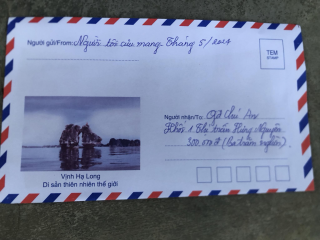 Người gửi/From: Người tôi cưu mang Tháng 5/2024
TEM
STAMP
Người nhận/To: Chú An
Khối 1 Thị trấn Hưng Nguyên
300.000đ (Ba trăm nghìn).
Vịnh Hạ Long
Di sản thiên nhiên thế giới